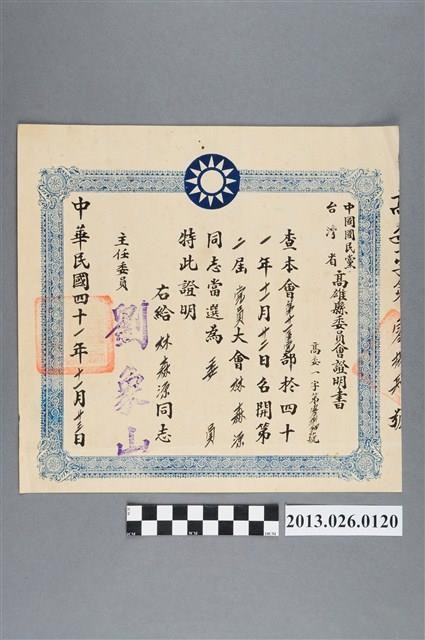 中國國民黨
台灣省
高雄縣委員會證明書
高委一字第
查本會第十一區黨部於四十
一年十一月廿二日召開第
二屆黨員大會林森源
同志當選為委員
特此證明
右給林森源同志
主任委員
劉象山
中華民國四十一年十一月廿三日
2013.026.0120